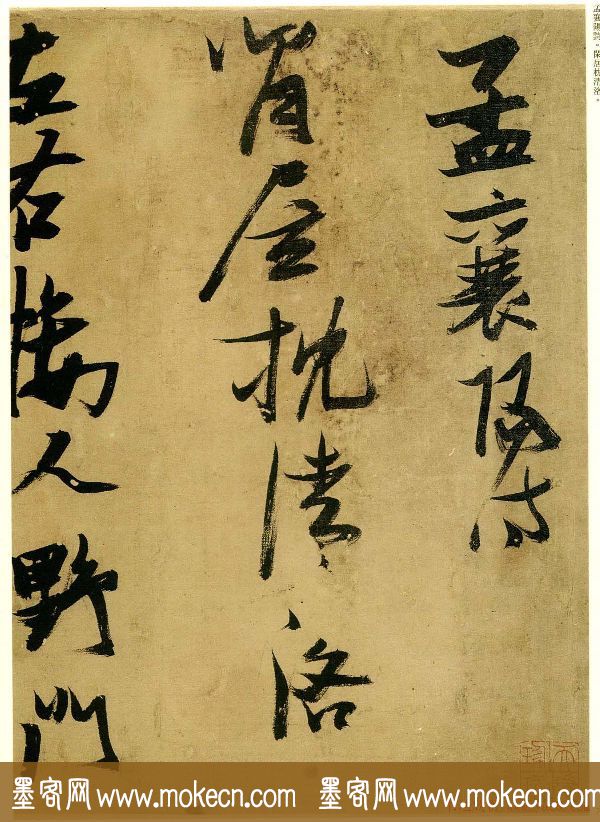 孟襄陽詩。閑居枕清洛。
孟襄陽詩
閒居枕清洛
左右接大野門
墨客网 www.mokecn.com 墨客网 www.mokecn.com